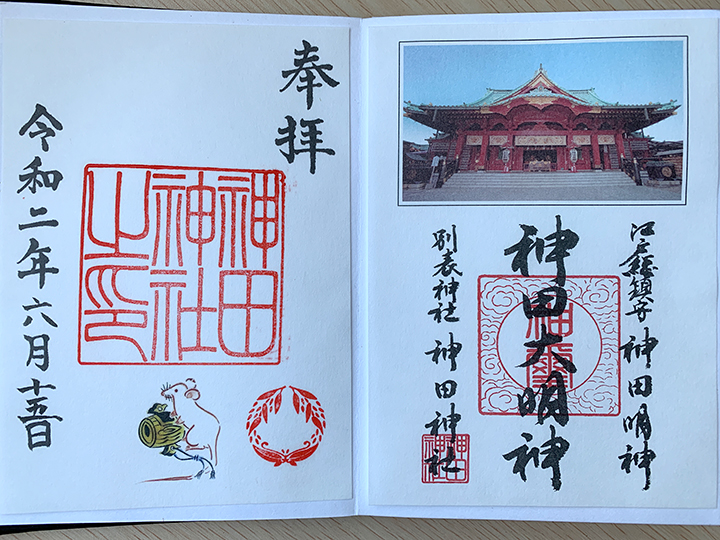 江戸総鎮守 神田明神
神田大明神
別表神社 神田神社
神田神社
奉拝
神田神社之印
令和二年六月十五日